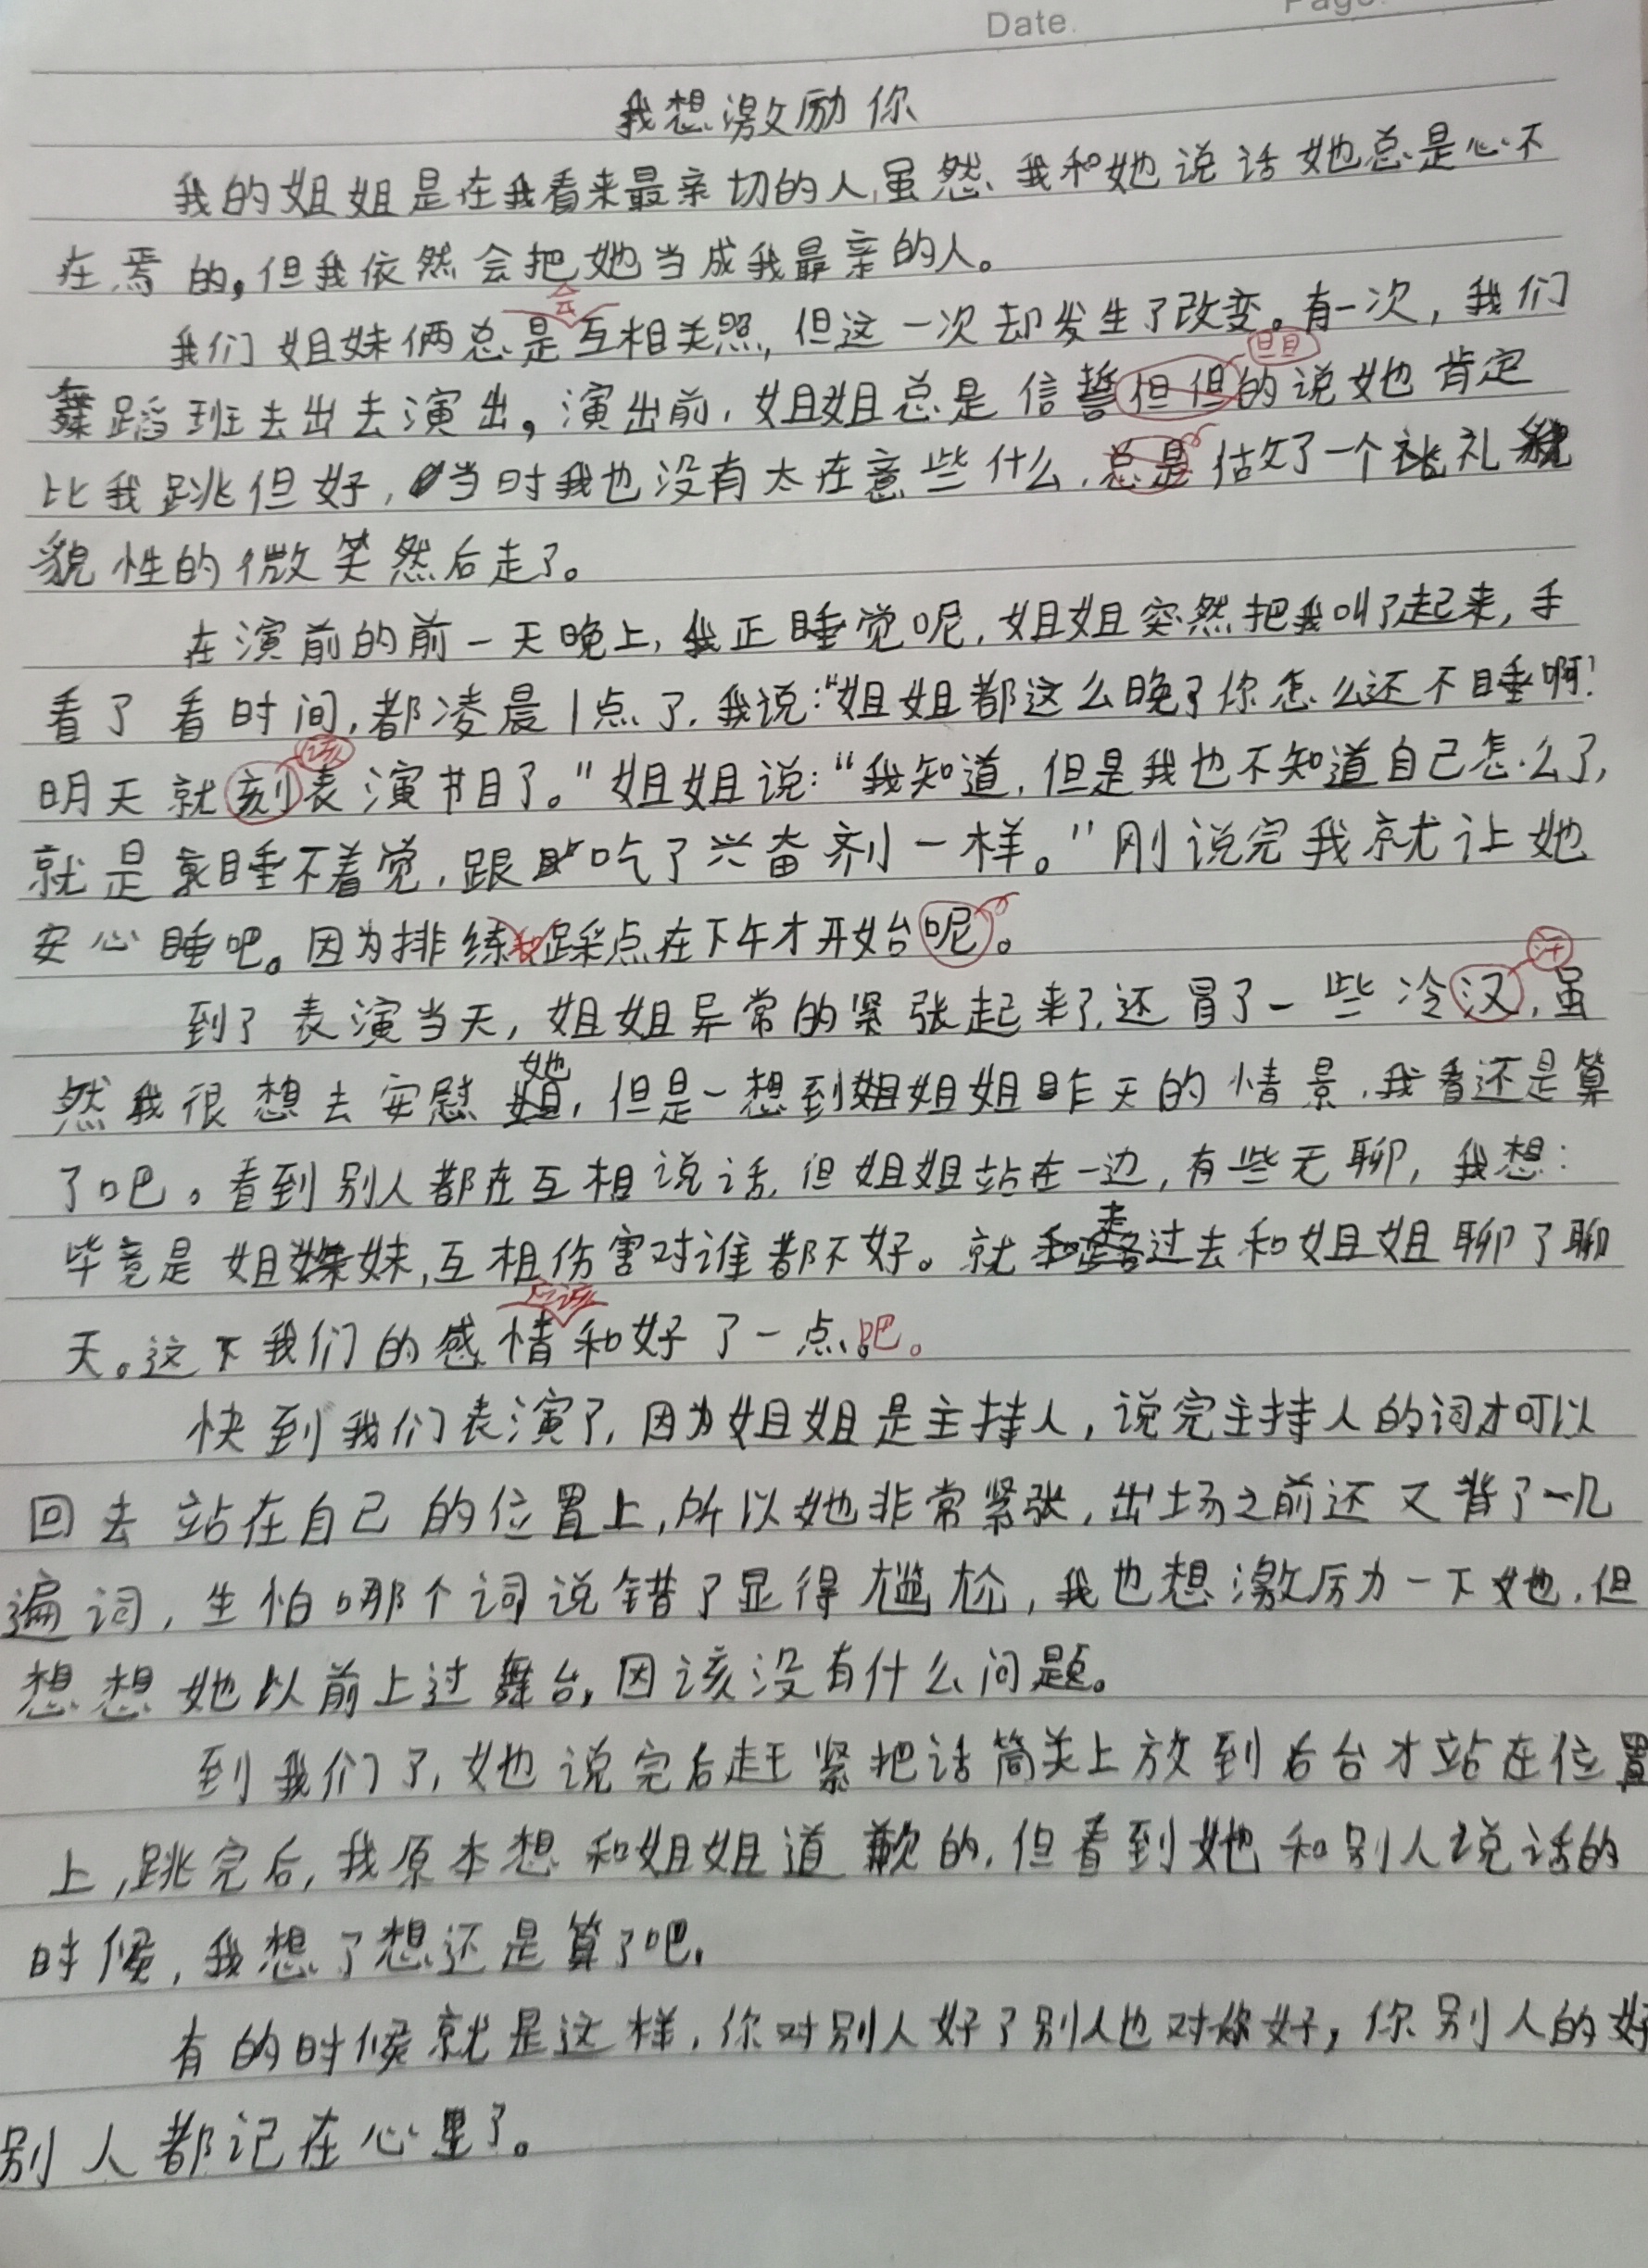 Date.
Page.
我想激励你
我的姐姐是在我看来最亲切的人,虽然、我和她说话她总是心不
在焉的,但我依然会把她当成我最亲的人。
会
我们姐妹俩总是互相关照,但这一次却发生了改变。有一次,我们
旦旦
舞蹈班去出去演出,演出前,姐姐总是信誓但但的说她肯定
比我跳但好,当时我也没有太在意些什么,总是估了一个礼
貌性的微笑然后走了。
在演前的前一天晚上,我正睡觉呢,姐姐突然把我叫了起来,手
看了看时间,都凌晨1点了,我说:“姐姐都这么晚了你怎么还不睡啊!
该
明天就刻表演节目了。”姐姐说:“我知道,但是我也不知道自己怎么了,
就是睡不着觉,跟吃了兴奋剂一样。”刚说完我就让她
安心睡吧。因为排练踩点在下午才开始呢。
汗
到了表演当天,姐姐异常的紧张起来了,还冒了一些冷汉,虽
她
然我很想去安慰,但是一想到姐姐昨天的情景,我看还是算
了吧。看到别人都在互相说话,但姐姐站在一边,有些无聊,我想:
走
毕竟是姐妹,互相伤害对谁都不好。就过去和姐姐聊了聊
应该
天。这下我们的感情和好了一点吧。
快到我们表演了,因为姐姐是主持人,说完主持人的词才可以
回去站在自己的位置上,所以她非常紧张,出场之前还又背了一几
遍词,生怕哪个词说错了显得尴尬,我也想激励一下她,但
想想她以前上过舞台,因该没有什么问题。
到我们了,她说完后赶紧把话筒关上放到后台才站在位置
上,跳完后,我原本想和姐姐道歉的,但看到她和别人说话的
时候,我想了想还是算了吧。
有的时候就是这样,你对别人好了别人也对你好,你别人的好
别人都记在心里了。